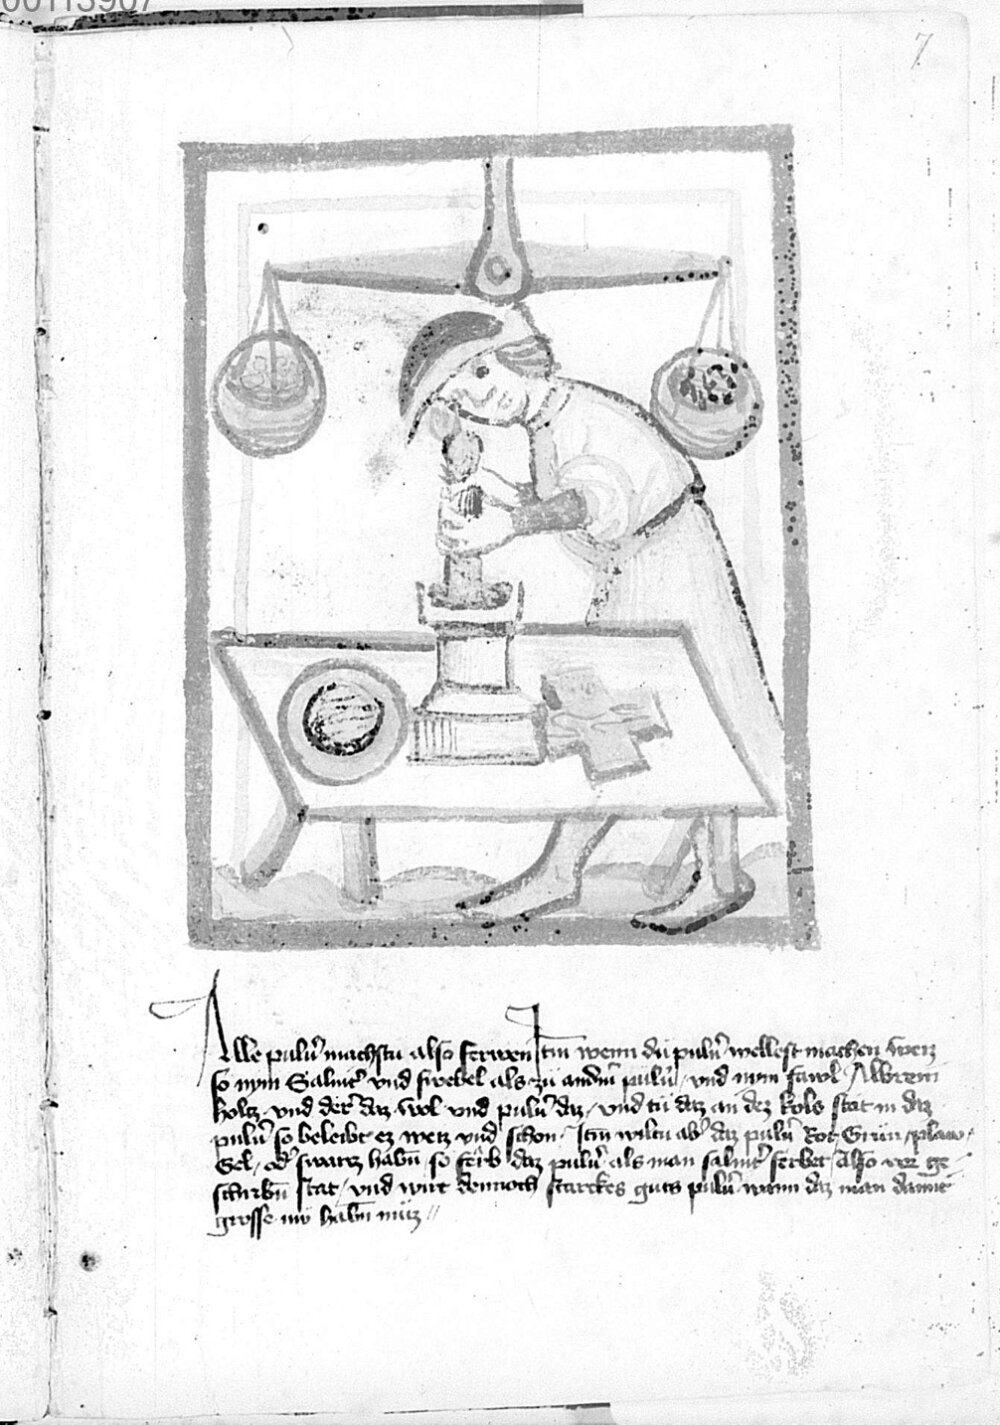 00113907
7
Alle pulu᷑ machstu also ferwen Itm̄ wenn du pulu᷑ wellest machen weiz
so nym Saluit᷑ vnd swebel als zu and᷑m pulu᷑ / vnd nym fawl Albrein
holtz vnd der᷑ daz wol vnd pulu᷑ daz / vnd tů daz an dez kols stat in daz
pulu᷑ so beleibt ez weiz vnd schon · Itm̄ wiltu ab᷑ daz pulu᷑ Rot Grün / plaw /
Gel / od᷑ swartz habn̄ so ferb daz pulu᷑ als man saluit᷑ ferbet / Also vor ge⸗
schribn̄ stat / vnd wirt dennoch starckes guts pulu᷑ wann daz man damit
grosse mw habn̄ můz //